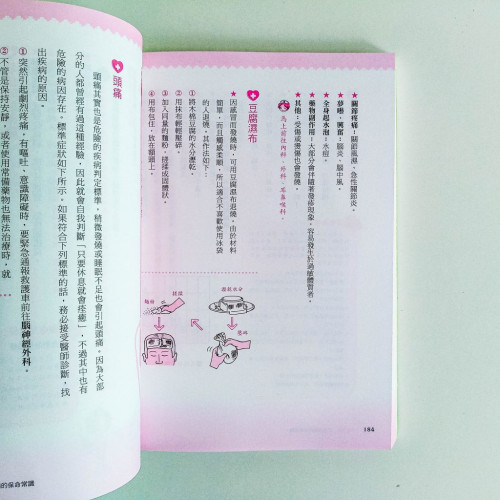 ★關節疼痛：關節風濕、急性關節炎。
★夢囈、興奮：腦炎、腦中風。
★全身起水泡：水痘。
★藥物副作用：大部分會伴隨著發疹現象，容易發生於過敏體質者。
★其他：受傷或燙傷也會發燒。
馬上前往內科、外科、耳鼻喉科。
豆腐濕布
★因感冒而發燒時，可用豆腐濕布退燒。由於材料
簡單，而且觸感柔順，所以適合不喜歡使用冰袋
的人退燒，其作法如下：
①將木棉豆腐的水分瀝乾。
②用抹布輕輕壓碎。
③加入同量的麵粉，搓揉成固體狀。
④用布包住，放在額頭上。
瀝乾水分
壓碎
搓揉
麵粉
184
頭痛
頭痛其實也是危險的疾病判定標準，稍微發燒或睡眠不足也會引起頭痛，因為大部
分的人都曾經有過這種經驗，因此就會自我判斷「只要休息就會痊癒」，不過其中也有
危險的病因存在。標準症狀如下所示。如果符合下列標準的話，務必接受醫師診斷，找
出疾病的原因。
①突然引起劇烈疼痛，有嘔吐、意識障礙時，要緊急通報救護車前往腦神經外科。
②不管是保持安靜，或者使用常備藥物也無法治療時，就
的保命常識